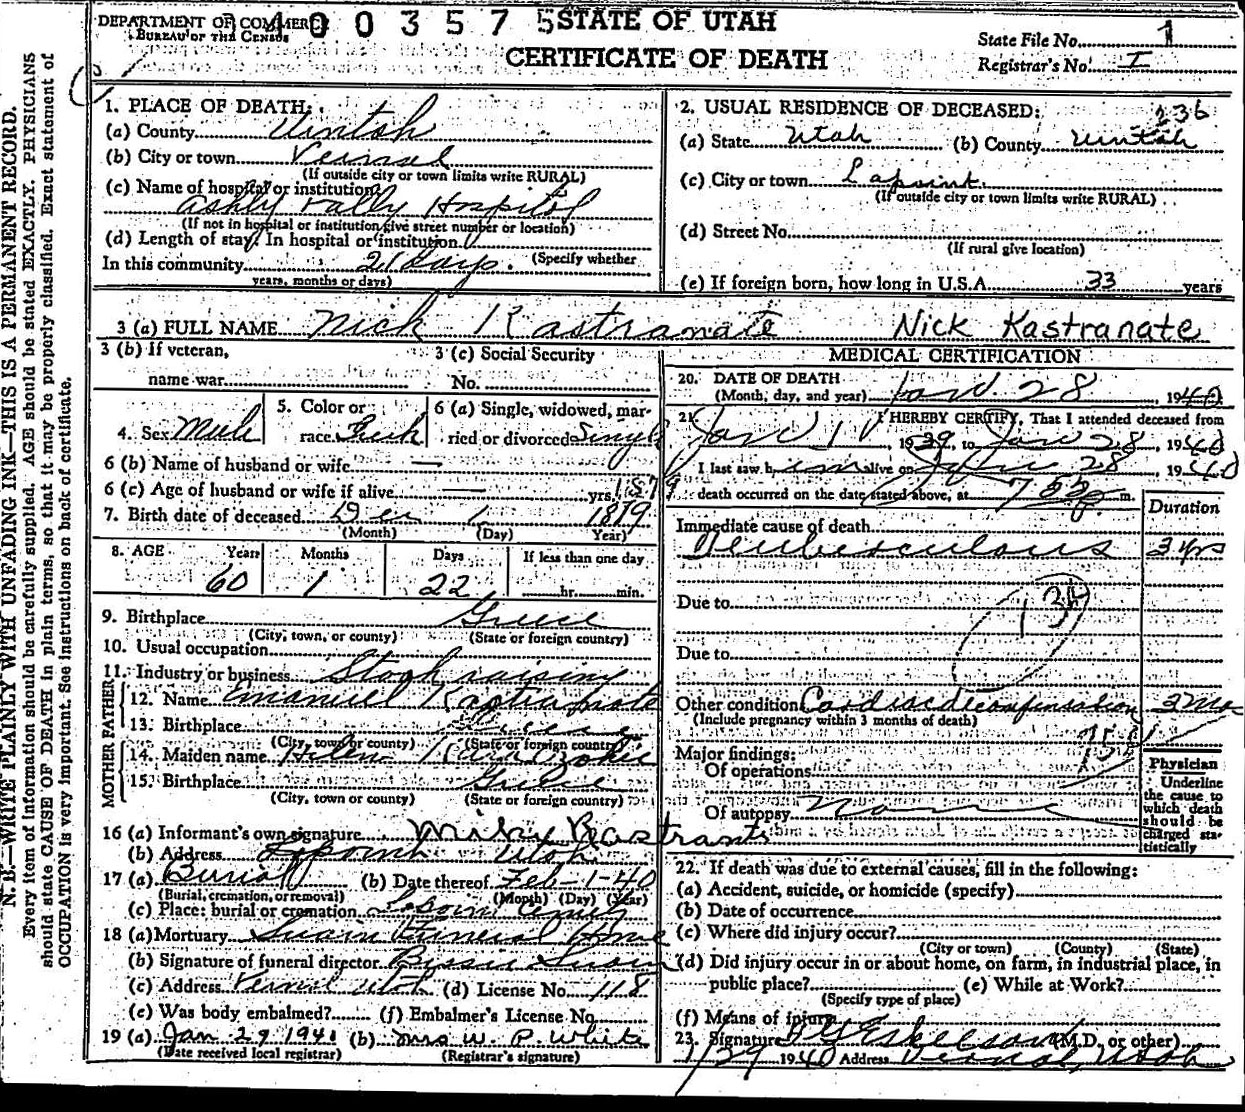 DEPARTMENT OF COMMERCE
BUREAU OF THE CENSUS
4003575
STATE OF UTAH
CERTIFICATE OF DEATH
State File No. 1
Registrar's No. I
N. B.—WRITE PLAINLY WITH UNFADING INK—THIS IS A PERMANENT RECORD.
Every item of information should be carefully supplied. AGE should be stated EXACTLY. PHYSICIANS
should state CAUSE OF DEATH in plain terms, so that it may be properly classified. Exact statement of
OCCUPATION is very important. See instructions on back of certificate.
1. PLACE OF DEATH:
(a) County Uintah
(b) City or town Vernal
(If outside city or town limits write RURAL)
(c) Name of hospital or institution
Ashly Vally Hospital
(If not in hospital or institution give street number or location)
(d) Length of stay. In hospital or institution
In this community 21 days. (Specify whether
years, months or days)
2. USUAL RESIDENCE OF DECEASED: 236
(a) State Utah (b) County Uintah
(c) City or town Lapoint.
(If outside city or town limits write RURAL)
(d) Street No.
(If rural give location)
(e) If foreign born, how long in U.S.A. 33 years
3 (a) FULL NAME Nick Kastranate Nick Kastranate
3 (b) If veteran,
name war
3 (c) Social Security
No.
4. Sex Male
5. Color or
race Greek
6 (a) Single, widowed, mar-
ried or divorced Single
6 (b) Name of husband or wife —
6 (c) Age of husband or wife if alive — yrs. 1879
7. Birth date of deceased Dec 1 1819
(Month) (Day) Year)
8. AGE Years Months Days If less than one day
60 1 22 hr. min.
9. Birthplace Greece
(City, town, or county) (State or foreign country)
10. Usual occupation
11. Industry or business Stock raising
FATHER
12. Name Emanuel Kastranate
13. Birthplace Greece
(City, town or county) (State or foreign country)
MOTHER
14. Maiden name Helen
15. Birthplace Greece
(City, town or county) (State or foreign country)
16 (a) Informant's own signature Mike Kastrants
(b) Address Lapoint Utah
17 (a) Burial (b) Date thereof Feb-1-40
(Burial, cremation, or removal) (Month) (Day) (Year)
(c) Place: burial or cremation Lapoint Cemety
18 (a) Mortuary Swain Funeral Home
(b) Signature of funeral director Bessie Swain
(c) Address Vernal Utah (d) License No. 118
(e) Was body embalmed? (f) Embalmer's License No.
19 (a) Jan. 29 1940 (b) Mrs W. P. White
(Date received local registrar) (Registrar's signature)
MEDICAL CERTIFICATION
20. DATE OF DEATH
(Month, day, and year) Jan. 28, 1940
21. I HEREBY CERTIFY, That I attended deceased from
Jan 1 1939, to Jan 28, 1940
I last saw him alive on Jan 28 1940
death occurred on the date stated above, at 7 p. m.
Duration
Immediate cause of death
Tuberculous 3 yrs
Due to 13
Due to
Other condition Cardiac decompensation 3 mo
(Include pregnancy within 3 months of death)
Major findings:
Of operations
Of autopsy None
Physician
Underline
the cause to
which death
should be
charged sta-
tistically
22. If death was due to external causes, fill in the following:
(a) Accident, suicide, or homicide (specify)
(b) Date of occurrence
(c) Where did injury occur?
(City or town) (County) (State)
(d) Did injury occur in or about home, on farm, in industrial place, in
public place? (e) While at Work?
(Specify type of place)
(f) Means of injury
23. Signature Eskelson (M.D. or other)
1/29 1940 Address Vernal, Utah